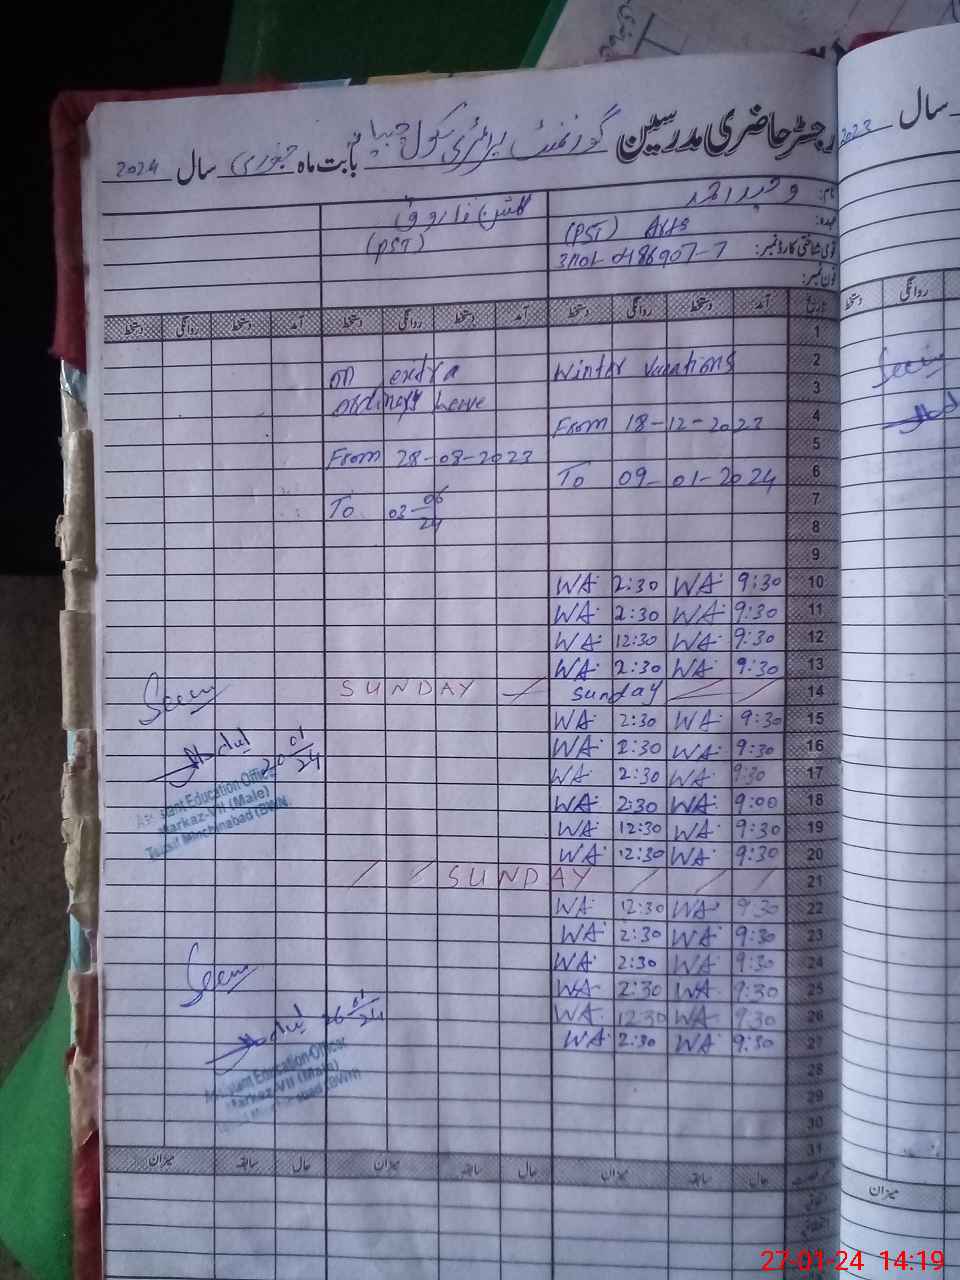 سال
2023
رجسٹر حاضری مدرسین گورنمنٹ پرائمری سکول
بابت ماہ جنوری سال 2024
نام: وحید احمد
عہدہ: (PST)
قومی شناختی کارڈ نمبر:
فون نمبر:
گلشن فاروق
(PST)
تاریخ آمد دستخط روانگی دستخط آمد دستخط روانگی دستخط آمد دستخط روانگی دستخط
روانگی دستخط
1
2 Winter Vacations
3
4 From 18-12-2023
5
6 To 09-01-2024
7
8
9
on extra
ordinary Leave
From 28-08-2023
To 03-06/24
10 9:30 WA 2:30 WA
11 9:30 WA 2:30 WA
12 9:30 WA 12:30 WA
13 9:30 WA 2:30 WA
14 Sunday SUNDAY
15 9:30 WA 2:30 WA
16 9:30 WA 2:30 WA
17 9:30 WA 2:30 WA
18 9:00 WA 2:30 WA
19 9:30 WA 12:30 WA
20 9:30 WA 12:30 WA
21 SUNDAY
22 9:30 WA 12:30 WA
23 9:30 WA 2:30 WA
24 9:30 WA 2:30 WA
25 9:30 WA 2:30 WA
26 9:30 WA 12:30 WA
27 9:30 WA 2:30 WA
28
29
30
31
Seen
20 01/24
Assistant Education Officer
Markaz-VII (Male)
Tehsil Minchinabad (BWN)
Seen
26 01/24
Assistant Education Officer
Markaz-VII (Male)
حال سابقہ میزان حال سابقہ میزان حال سابقہ میزان
میزان
Seen
27-01-24 14:19